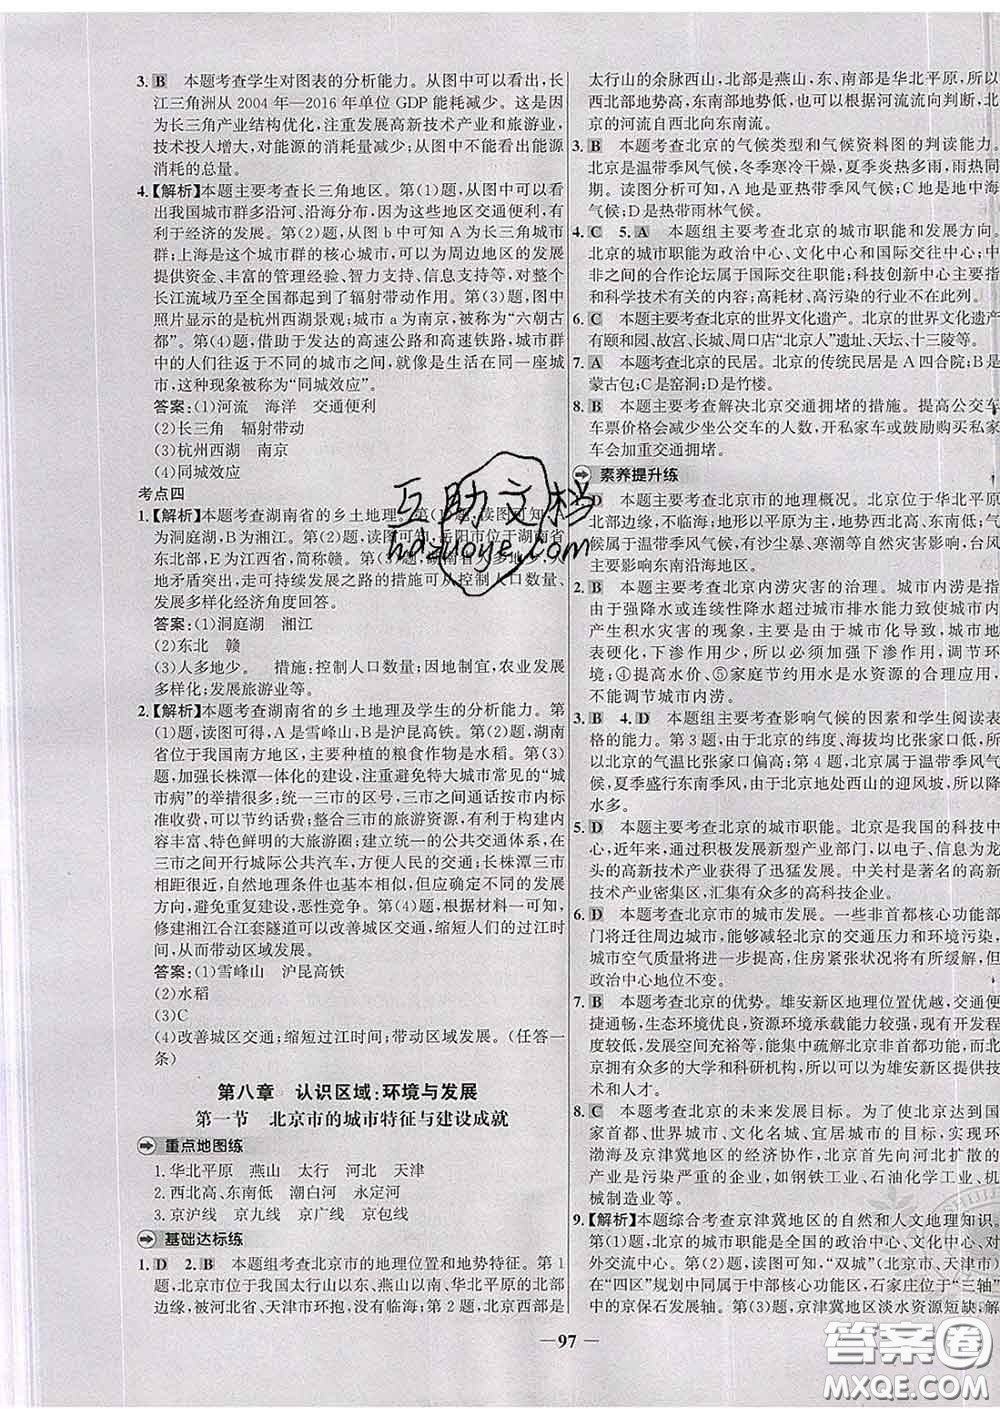 3. B 本题考查学生对图表的分析能力。从图中可以看出,长
江三角洲从 2004 年—2016 年单位 GDP 能耗减少。这是因
为长三角产业结构优化,注重发展高新技术产业和旅游业,
技术投入增大,对能源的消耗量减少,而不是该区域能源
消耗的总量。
4.【解析】本题主要考查长三角地区。第(1)题,从图中可以看
出我国城市群多沿河、沿海分布,因为这些地区交通便利,
有利于经济的发展。第(2)题,从图 b 中可知 A 为长三角城市
群;上海是该城市群的核心城市,可以为周边地区的发展
提供资金、丰富的管理经验、智力支持、信息支持等,对整个
长江流域乃至全国都起到了辐射带动作用。第(3)题,图中
照片显示的是杭州西湖景观;城市 a 为南京,被称为“六朝古
都”。第(4)题,借助于发达的高速公路和高速铁路,城市群
中的人们往返于不同的城市之间,感觉更像在同一座城
市,这种现象被称为“同城效应”。
答案:(1)河流 海洋 交通便利
(2)长三角 辐射带动
(3)杭州西湖 南京
(4)同城效应
考点四
1.【解析】本题考查湖南省的乡土地理。第(1)题,读图可知,A
为洞庭湖,B为湘江。第(2)题,读图可知,岳阳市位于湖南省
东北部,E为江西省,简称赣。第(3)题,湖南省人多地少,人
地矛盾突出,走可持续发展之路的措施可从控制人口数量、
发展多样化经济角度回答。
答案:(1)洞庭湖 湘江
(2)东北 赣
(3)人多地少。 措施:控制人口数量;因地制宜,农业发展
多样化;发展旅游业等。
2.【解析】本题考查湖南省的乡土地理及学生的分析能力。第
(1)题,读图可得,A是雪峰山,B是沪昆高铁。第(2)题,湖南
省位于我国南方地区,主要种植的粮食作物是水稻。第(3)
题,加强长株潭一体化的建设,注重避免特大城市常见的“城
市病”的发生;统一三市的区号,三市之间通话按市内标
准收费,可以节约话费;整合三市的旅游资源,有利于构建内
容丰富、特色鲜明的大旅游圈;建立统一的公共交通体系,在
三市之间开行城际公共汽车,方便人们出行。长株潭三市
相距很近,自然地理条件也基本相同,因此可以共同规划产
业建设,避免重复建设,恶性竞争。第(4)题,根据材料一可知,
修建湘江合江套隧道可以改善城区交通,缩短人们的过江时
间,从而带动区域发展。
答案:(1)雪峰山 沪昆高铁
(2)水稻
(3)C
(4)改善城区交通;缩短过江时间;带动区域发展。(任答一
条)
第八章 认识区域:环境与发展
第一节 北京市的城市特征与建设成就
重点地图练
1.华北平原 燕山 太行 河北 天津
2.西北高、东南低 潮白河 永定河
3.京沪线 京九线 京广线 京包线
基础达标练
1. D 2. B 本题组考查北京市的地理位置和地势特征。第 1
题,北京市位于我国太行山以东、燕山以南、华北平原的北部
边缘,被河北省、天津市环抱,没有临海;第 2 题,北京西部是
太行山的余脉西山,北部是燕山,东、南部是华北平原,所以
西北部地势高,东南部地势低,也可以根据河流流向判断,北
京的河流自西北向东南流。
3. B 本题考查北京的气候类型和气候资料图的判读能力。
北京是温带季风气候,冬季寒冷干燥,夏季炎热多雨,雨热同
期。读图分析可知,A 地是亚热带季风气候;C 地是地中海
气候;D 是热带雨林气候。
4. C 5. A 本题组主要考查北京的城市职能和发展方向。
北京的城市职能为政治中心、文化中心和国际交往中心;中
非之间的合作论坛属于国际交往职能;科技创新中心主要指
科技发展和创新;高耗材、高污染的行业不在此列。
6. C 本题主要考查北京的世界文化遗产。北京的世界文化遗产
有颐和园、故宫、长城、周口店“北京人”遗址、天坛、十三陵等。
7. A 本题考查北京的民居。北京的传统民居是 A 四合院;B是
蒙古包;C 是窑洞;D 是竹楼。
8. B 本题主要考查解决北京交通拥堵的措施。提高公交车
车票价格会减少坐公交车的人数,开私家车或鼓励购买私家
车会加重交通拥堵。
素养提升练
D 本题考查北京市的地理概况。北京位于华北平原
北部边缘,不临海;地形以平原为主,西北高、东南低;气
候属于温带季风气候,有沙尘暴、寒潮等自然灾害影响,台风
主要影响东南沿海地区。
2. B 本题主要考查北京内涝灾害的治理。城市内涝是指
由于强降水或连续性降水超过城市排水能力致使城市内
产生积水灾害的现象,主要是由于城市化导致城市地
表硬化,下渗作用减弱,所以必须加强下渗作用,调节环
境;④提高水价、⑤家庭节约用水是水资源的合理应用,
不能调节城市内涝。
3. B 4. D 本题组主要考查影响气候的因素和学生阅读表
格的能力。第 3 题,由于北京的纬度、海拔均比张家口低,所
以北京的气温比张家口偏高;第 4 题,北京属于温带季风气
候,夏季盛行东南季风,由于北京地处西山的迎风坡,所以降
水多。
5. D 本题主要考查北京的城市职能。北京是我国的科技中
心,近年来,通过积极发展新型产业部门,以电子、信息为龙
头的高新技术产业获得了迅猛发展。中关村是著名的高新
技术产业密集区,汇集有众多的高科技企业。
6. D 本题考查北京市的城市发展。一些非首都核心功能部
门将迁往周边城市,能够减轻北京的交通压力和环境污染,
城市空气质量将进一步提升,住房紧张状况将会改善,但其
政治中心地位不变。
7. B 本题考查北京的优势。雄安新区地理位置优越,交通便
捷通畅,生态环境优良,资源环境承载能力较强,现有开发程
度较低,发展空间充裕等,能集中疏解北京非首都功能,而北
京有众多的大学和科研机构,可以为雄安新区发展提供技
术和人才。
8. C 本题考查北京的未来发展目标。为了使北京达到国
家首都、世界城市、文化名城、宜居城市的目标,实现环
渤海及京津冀地区的经济协作,北京首先向河北扩散的
产业是污染严重的企业,如钢铁工业、石油化学工业、机
械制造工业等。
9.【解析】本题综合考查京津冀地区的自然和人文地理知识。
第(1)题,北京的城市职能是全国的政治中心、文化中心、国
际交往中心、科技创新中心。第(2)题,“双城”(北京市、天津市)
在“四区”规划中同属于中部核心功能区,石家庄位于“三轴”
中的京保石发展轴。第(3)题,京津冀地区淡水资源短缺,解
— 97 —
互助文档
hdzuoye.com
答案圈
MXQE.COM